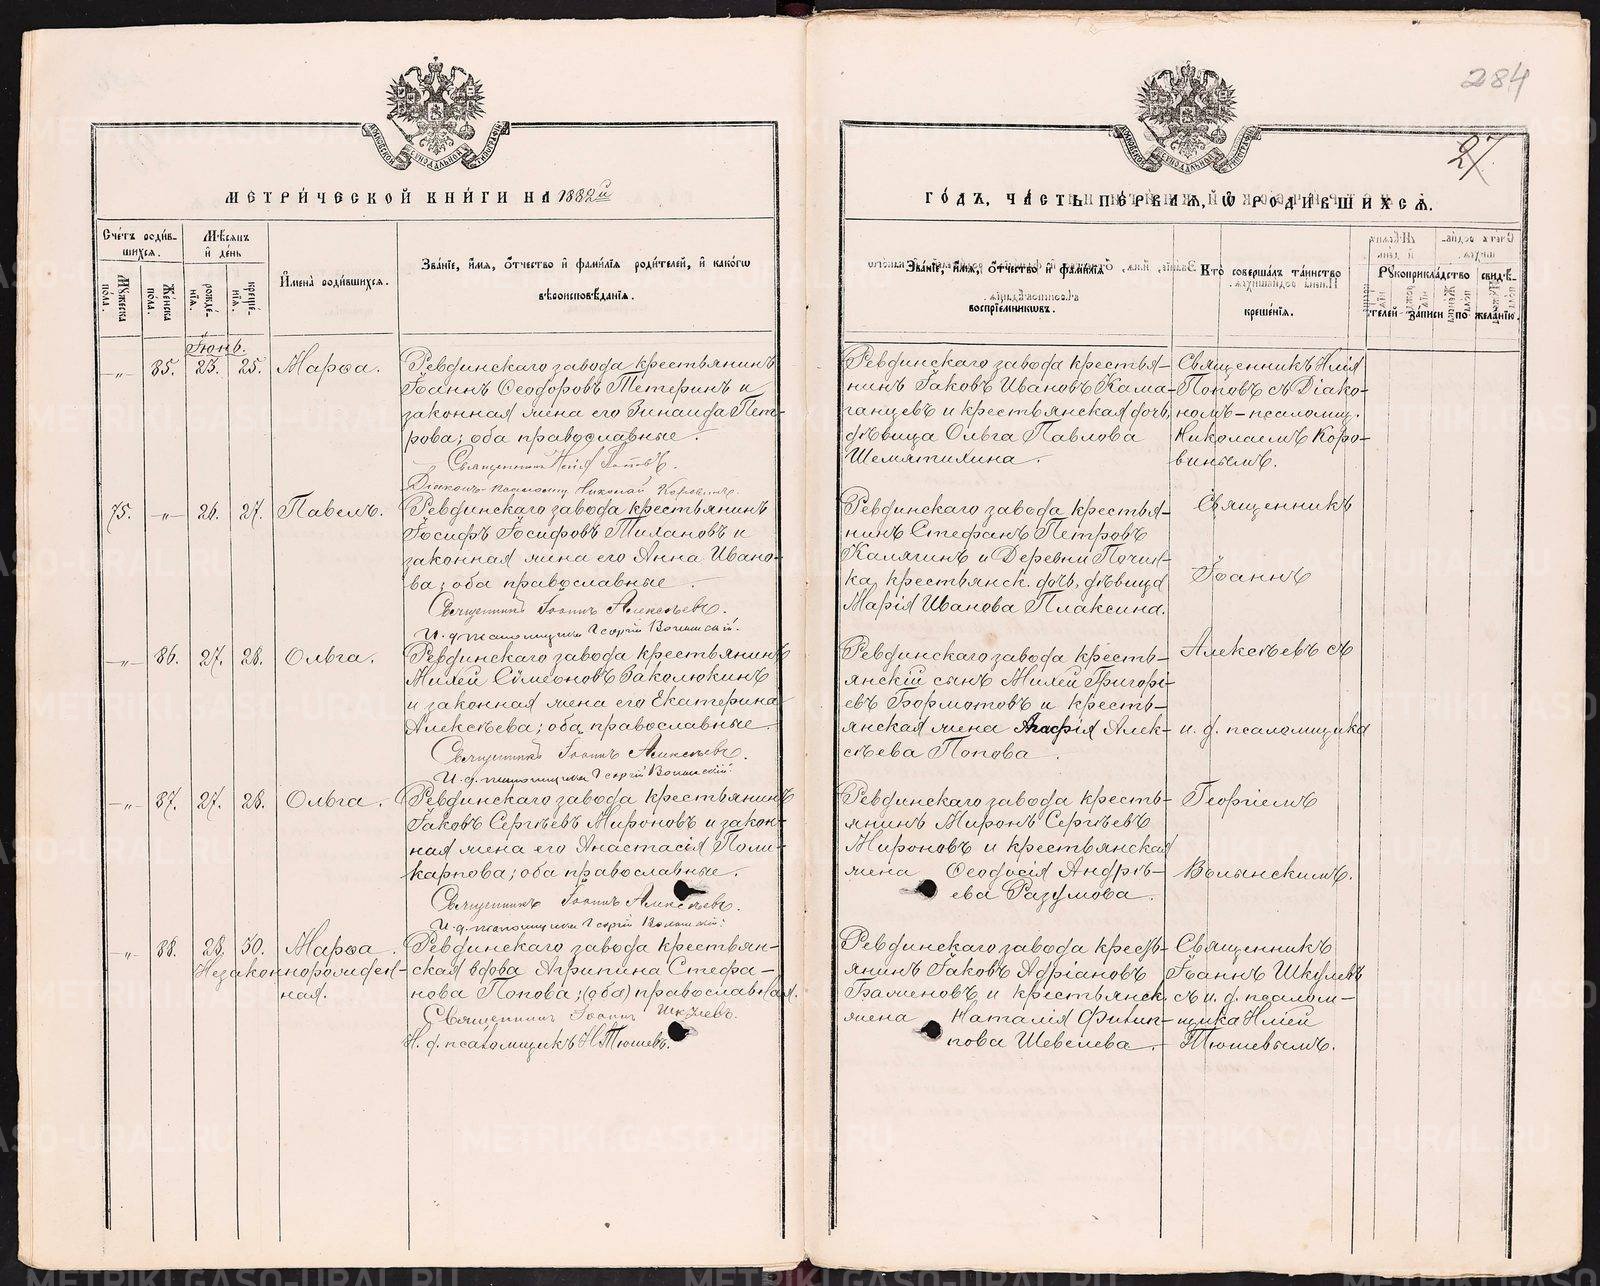 284
27.
МЕТРИЧЕСКОЙ КНИГИ НА 1882й
ГОДЪ, ЧАСТЬ ПЕРВАЯ, Ѡ РОДИВШИХСЯ.
Счетъ родив-
шихся.
Мужеска
пола.
Женска
пола.
Мѣсяцъ
и день
рожде-
нія.
креще-
нія.
Имена родившихся.
Званіе, имя, отчество и фамилія родителей, и какогѡ
вѣроисповѣданія.
Званіе, имя, отчество и фамилія
воспріемниковъ.
Кто совершалъ таинство
крещенія.
Рукоприкладство свидѣ-
телей записи по желанію.
Іюнь.
-"- 85. 23. 25. Марѳа.
Ревдинскаго завода крестьянинъ
Іоаннъ Ѳеодоровъ Тетеринъ и
законная жена его Зинаида Пет-
рова; оба православные.
Священникъ Илія Поповъ.
Діаконъ-псаломщ. Николай Коровинъ.
Ревдинскаго завода крестья-
нинъ Іаковъ Ивановъ Кама-
ганцевъ и крестьянская дочь,
дѣвица Ольга Павлова
Шемятихина.
Священникъ Илія
Поповъ съ Діако-
номъ-псаломщ.
Николаемъ Коро-
винымъ.
75. -"- 26. 27. Павелъ.
Ревдинскаго завода крестьянинъ
Іосифъ Іосифовъ Тихановъ и
законная жена его Анна Ивано-
ва; оба православные.
Священникъ Іоаннъ Алексѣевъ.
И. д. псаломщика Георгій Волынскій.
Ревдинскаго завода крестья-
нинъ Стефанъ Петровъ
Калягинъ и Деревни Почин-
ка, крестьянск. дочь, дѣвица
Марія Иванова Плаксина.
Священникъ
Іоаннъ
-"- 86. 27. 28. Ольга.
Ревдинскаго завода крестьянинъ
Михей Сѵмеоновъ Заколюкинъ
и законная жена его Екатерина
Алексѣева; оба православные.
Священникъ Іоаннъ Алексѣевъ.
И. д. псаломщика Георгій Волынскій.
Ревдинскаго завода кресть-
янскій сынъ Михей Григорі-
евъ Бормотовъ и кресть-
янская жена Агафія Алек-
сѣева Попова.
Алексѣевъ съ
и. д. псаломщика
-"- 87. 27. 28. Ольга.
Ревдинскаго завода крестьянинъ
Іаковъ Сергѣевъ Мироновъ и закон-
ная жена его Анастасія Поли-
карпова; оба православные.
Священникъ Іоаннъ Алексѣевъ.
И. д. псаломщика Георгій Волынскій.
Ревдинскаго завода кресть-
янинъ Миронъ Сергѣевъ
Мироновъ и крестьянская
жена Ѳеодосія Андрѣ-
ева Разумова.
Георгіемъ
Волынскимъ.
-"- 88. 28. 30. Марѳа.
Незаконнорожден-
ная.
Ревдинскаго завода крестьян-
ская вдова Агрипина Стефа-
нова Попова; (оба) православная.
Священникъ Іоаннъ Шкулевъ.
И. д. псаломщикъ И. Тюшевъ.
Ревдинскаго завода кресть-
янинъ Іаковъ Адріановъ
Баженовъ и крестьянск.
жена Наталія Филип-
пова Шевелева.
Священникъ
Іоаннъ Шкулевъ
съ и. д. псалом-
щика Иліей
Тюшевымъ.